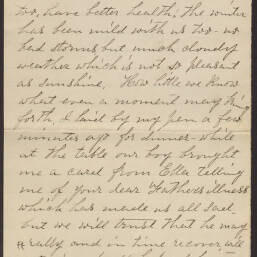 too, have better health; the winter
has been mild with us too - no
bad storms but much cloudy
weather which is not so pleasant
as sunshine. How little we know
what even a moment may bring
forth, I laid by my pen a few
minutes ago for dinner - while
at the table our boy brought
me a card from Ella telling
me of your dear Father's illness
which has made us all sad.
but we will trust that he may
rally and in time recover, will